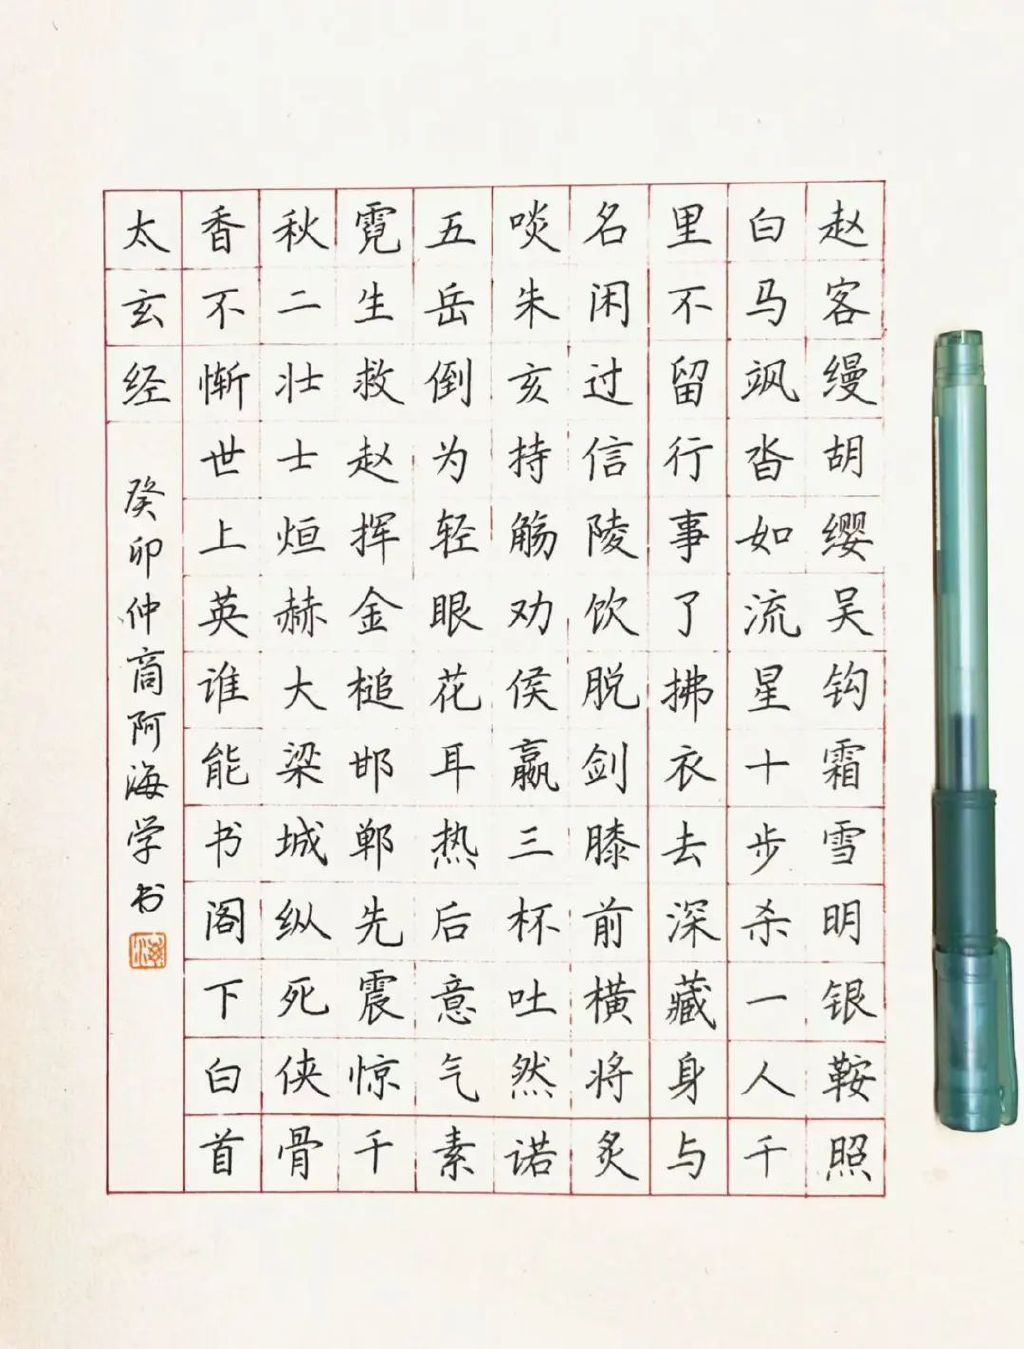 赵客缦胡缨吴钩霜雪明银鞍照
白马飒沓如流星十步杀一人千
里不留行事了拂衣去深藏身与
名闲过信陵饮脱剑膝前横将炙
啖朱亥持觞劝侯嬴三杯吐然诺
五岳倒为轻眼花耳热后意气素
霓生救赵挥金槌邯郸先震惊千
秋二壮士烜赫大梁城纵死侠骨
香不惭世上英谁能书阁下白首
太玄经
癸卯仲商阿海学书
海